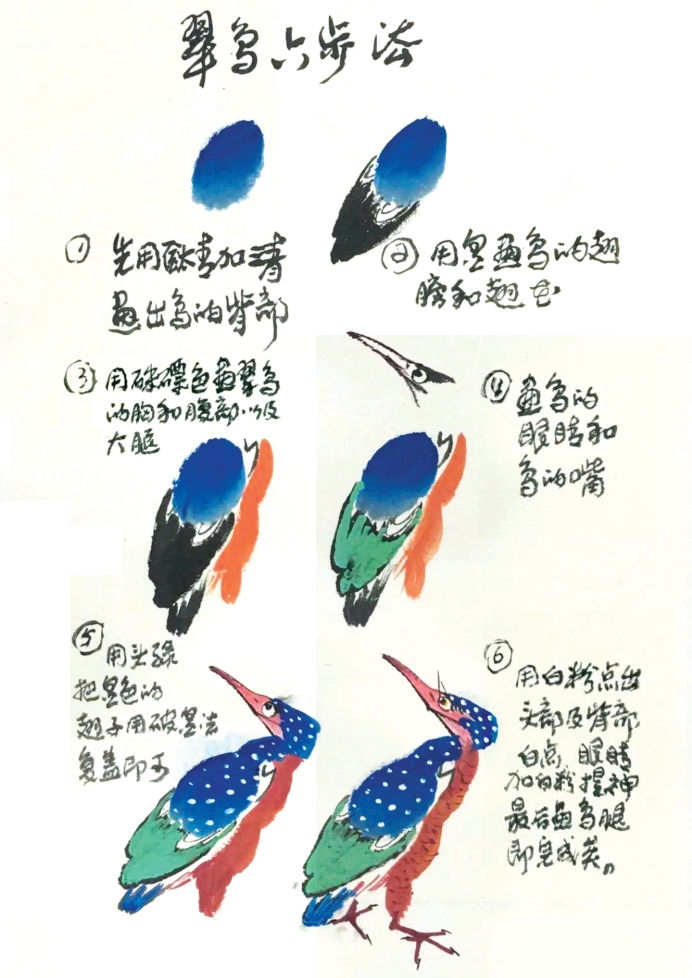 翠鸟六步法
① 先用酞青加清
画出鸟的背部
② 用墨画鸟的翅
膀和翅
③ 用硃磦色画翠鸟
的胸和腹部以及
大腿
④ 画鸟的
眼睛和
鸟的嘴
⑤ 用头绿
把黑色的
翅子用破墨法
复盖即可
⑥ 用白粉点出
头部及背部
白点 眼睛
加白粉提神
最后画鸟腿
即完成矣。